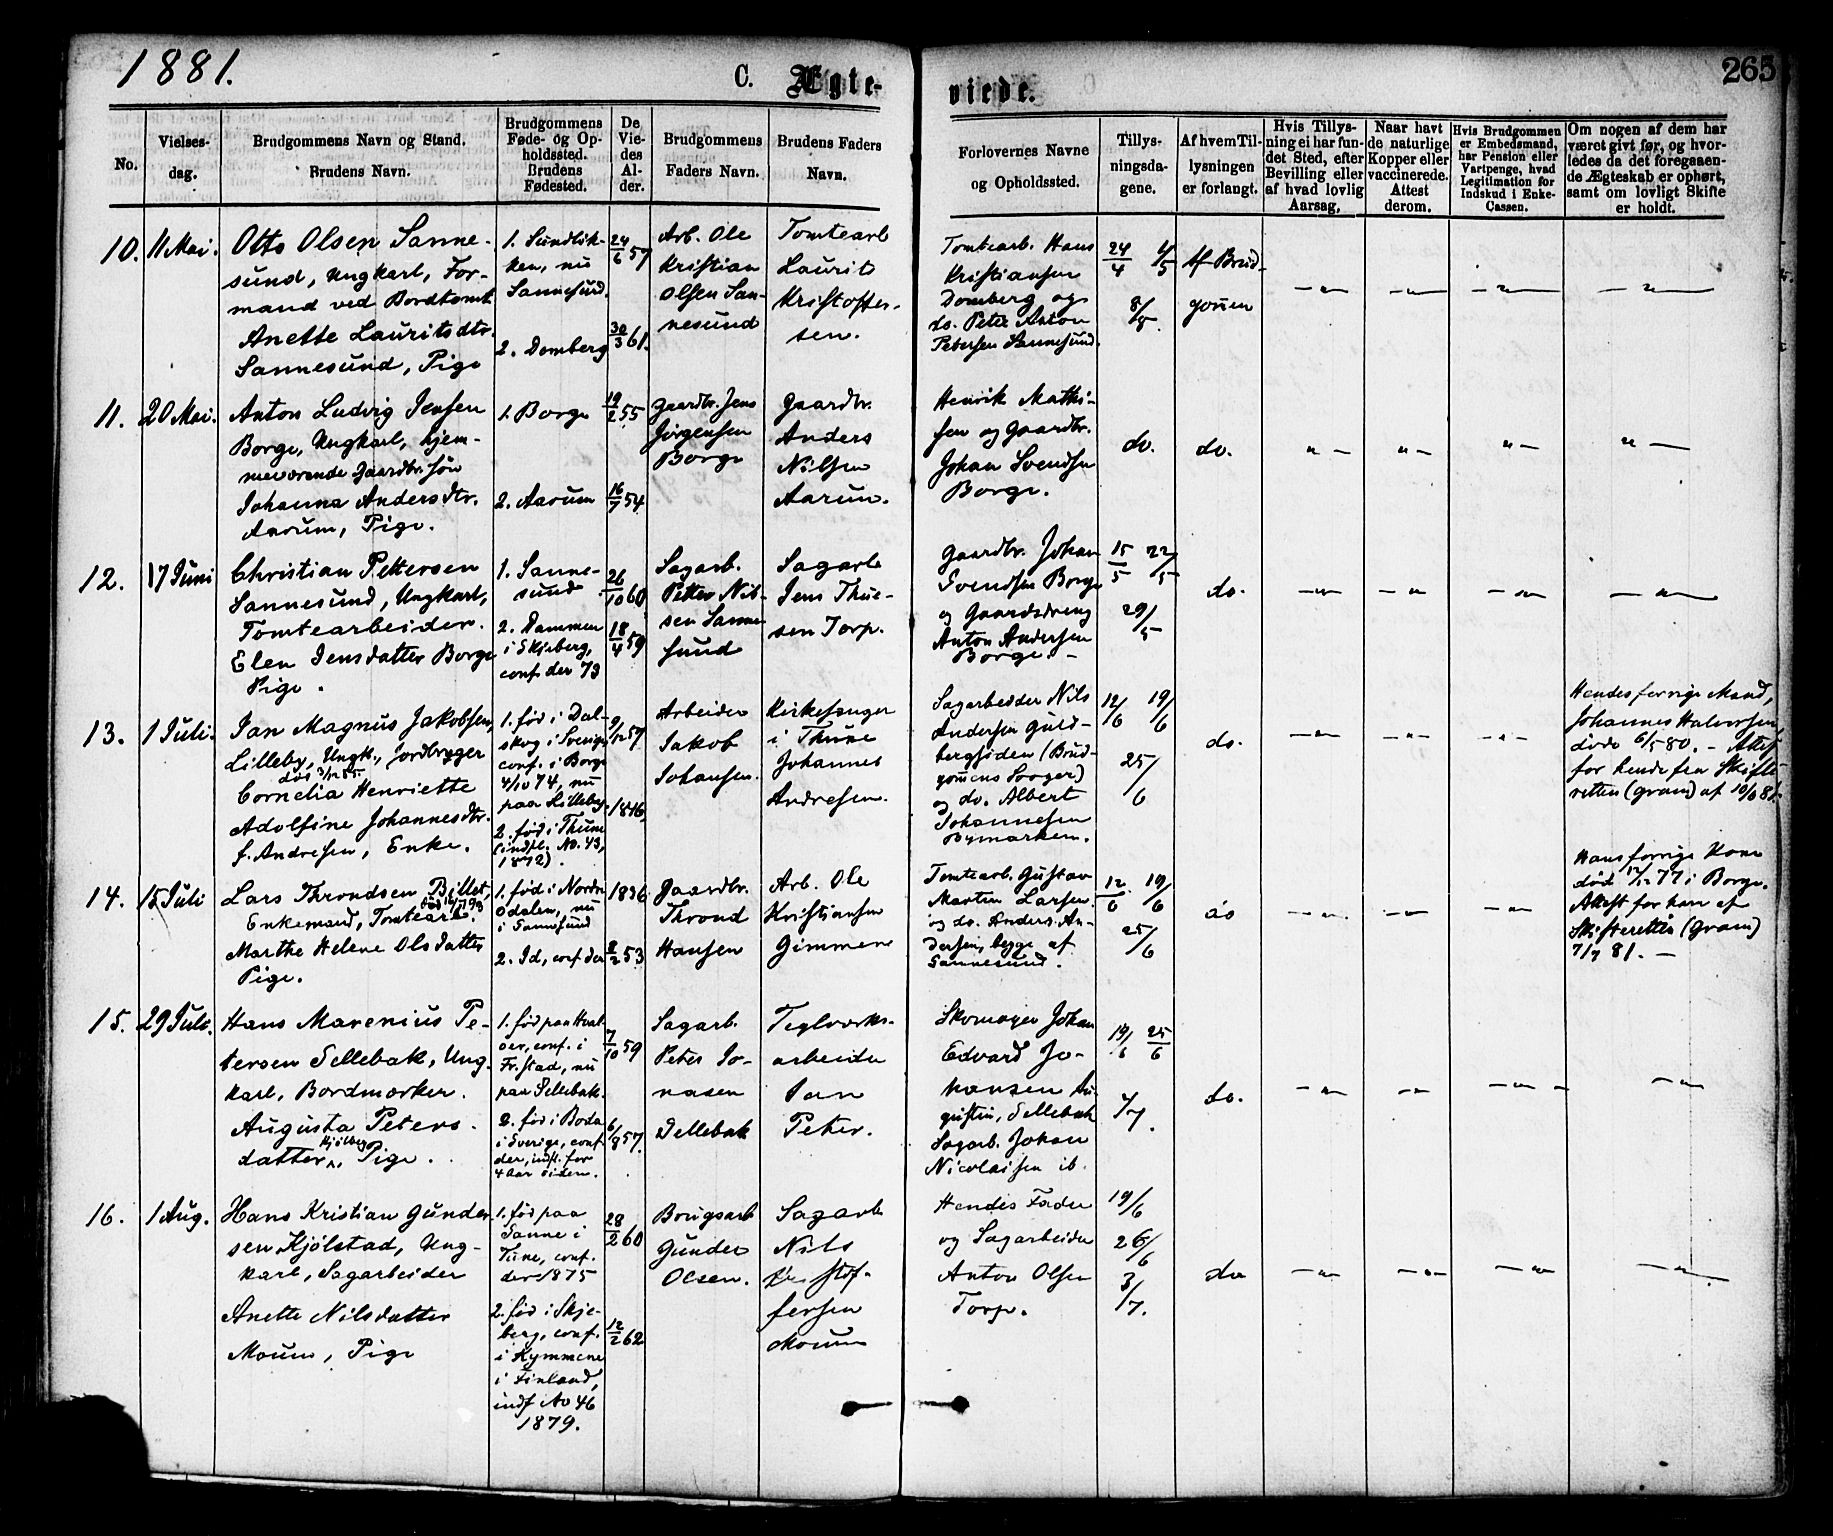 1881.
C. Ægte-
viede.
265
No.
Vielses-
dag.
Brudgommens Navn og Stand.
Brudens Navn.
Brudgommens
Føde- og Op-
holdssted.
Brudens
Fødested.
De
Vie-
des
Al-
der.
Brudgommens
Faders Navn.
Brudens Faders
Navn.
Forlovernes Navne
og Opholdssted.
Tillys-
ningsda-
gene.
Af hvem Til-
lysningen
er forlangt.
Hvis Tillys-
ning ei har fun-
det Sted, efter
Bevilling eller
af hvad lovlig
Aarsag,
Naar havt
de naturlige
Kopper eller
vaccinerede.
Attest
derom.
Hvis Brudgommen
er Embedsmand,
har Pension eller
Vartpenge, hvad
Legitimation for
Indskud i Enke-
Cassen.
Om nogen af dem har
været givt før, og hvor-
ledes da det foregaaen-
de Ægteskab er ophørt,
samt om lovligt Skifte
er holdt.
10.
11 Mai.
Otto Olsen Sanne-
sund, Ungkarl, For-
mand ved Bordtomt
Anette Lauritsdtr.
Sannesund, Pige
1. Sundlik-
ken, nu
Sannesund.
2. Domberg
24/6 57
30/3 61.
Arb. Ole
Kristian
Olsen San-
nesund
Tomtearb
Laurits
Kristoffer-
sen.
Tomtearb. Hans
Kristiansen
Domberg og
do. Peter Anton
Petersen Sannesund.
24/4 1/5
8/5.
Af Brud-
gomen
11.
20 Mai.
Anton Ludvig Jensen
Borge, Ungkarl, hjem-
meværende Gaardbr. søn
Johanna Andersdtr.
Aarum, Pige.
1. Borge
2. Aarum
19/2 55
16/7 54
Gaardbr. Jens
Jörgensen
Borge
Gaardbr.
Anders
Nilsen
Aarum.
Henrik Mathi-
sen og Gaardbr.
Johan Svendsen
Borge.
do.
do.
12.
17 Juni
Christian Pettersen
Sannesund, Ungkarl,
Tomtearbeider.
Elen Jensdatter Borge
Pige.
1. Sanne-
sund
2. Dammen
i Skjeberg,
conf der 73
26/10 60
18/4 59
Sagarb.
Petter Nil-
sen Sanne
sund
Sagarb
Jens Thue-
sen Torp.
Gaardbr. Johan
Svendsen Borge
og Gaardsdreng
Anton Andersen
Borge. -
15/5 22/5
29/5
do.
13.
1 Juli.
Jan Magnus Jakobsen,
Lilleby, Ungk., Jordbryger
Cornelia Henriette
Adolfine Johannesdtr.
f. Andresen, Enke.
1. fød i Dal-
skog i Sverige
conf. i Borge
4/10 74, nu
paa Lilleby.
2. fød i Thune
(indfl. No. 43,
1872).
9/12 57
1846
Arbeider
Jakob
Johansen.
Kirkesanger
i Thune
Johannes
Andresen.
Sagarbeider Nils
Andersen Guld-
bergsiden (Brud-
gomens Svoger)
og do. Albert
Johannesen
Bymarken.
12/6 19/6
25/6
do.
Hendes forrige Mand,
Johannes Halvorsen,
døde 6/5 80. - Attest
for hende fra Skifte
retten (Gram) af 10/6 81.
14.
15 Juli
Lars Throndsen Billet,
Enkemand, Tomtearb.
Marthe Helene Olsdatter
Pige.
1. fød i Nordre
Odalen, nu
i Sannesund
2. Id, conf der
1836
2/2 53
Gaardbr.
Thrond
Hansen
Arb. Ole
Kristiansen
Gimmene
Tomtearb. Gustav
Martin Larsen
og do. Anders An-
dersen, begge af
Sannesund.
12/6. 19/6
25/6
do
Hans forrige Kone
død 17/12 77 i Borge.
Attest for ham af
Skifteretten (Gram)
7/7 81. -
15.
29 Juli.
Hans Marenius Pe-
tersen Sellebak, Ung-
karl, Bordmærker.
Augusta Peters-
Kjilberg
datter, Pige.
1. fød paa Hval-
øer, conf. i
Fr.stad, nu
paa Sellebak.
2. fød i Boda
i Sverige, conf
der, indfl. for
4 Aar siden.
7/10 59
6/8 57.
Sagarb.
Peter Jo-
nasen
Sellebak
Teglværks-
arbeider
Jan
Peter.
Skomager Johan
Edvard Jo-
hansen Au-
gustin, Sellebak
Sagarb. Johan
Nicolaisen ib.
19/6 25/6
4/7.
do.
16.
1 Aug.
Hans Kristian Gunder-
sen Kjölstad, Ung-
karl, Sagarbeider
Anette Nilsdatter
Moum, Pige
1. fød paa
Sanne i
Tune, conf.
der 1875
2. fød i Skje-
berg, conf.
i Kymmene
i Finland,
indf No 46
1879.
28/2 60
12/2 62
Brugsarb
Gunder
Olsen.
Sagarb
Nils
Kristof-
fersen
Moum
Hendes Fader
og Sagarbeider
Anton Olsen
Torp.
19/6
26/6
3/7.
do